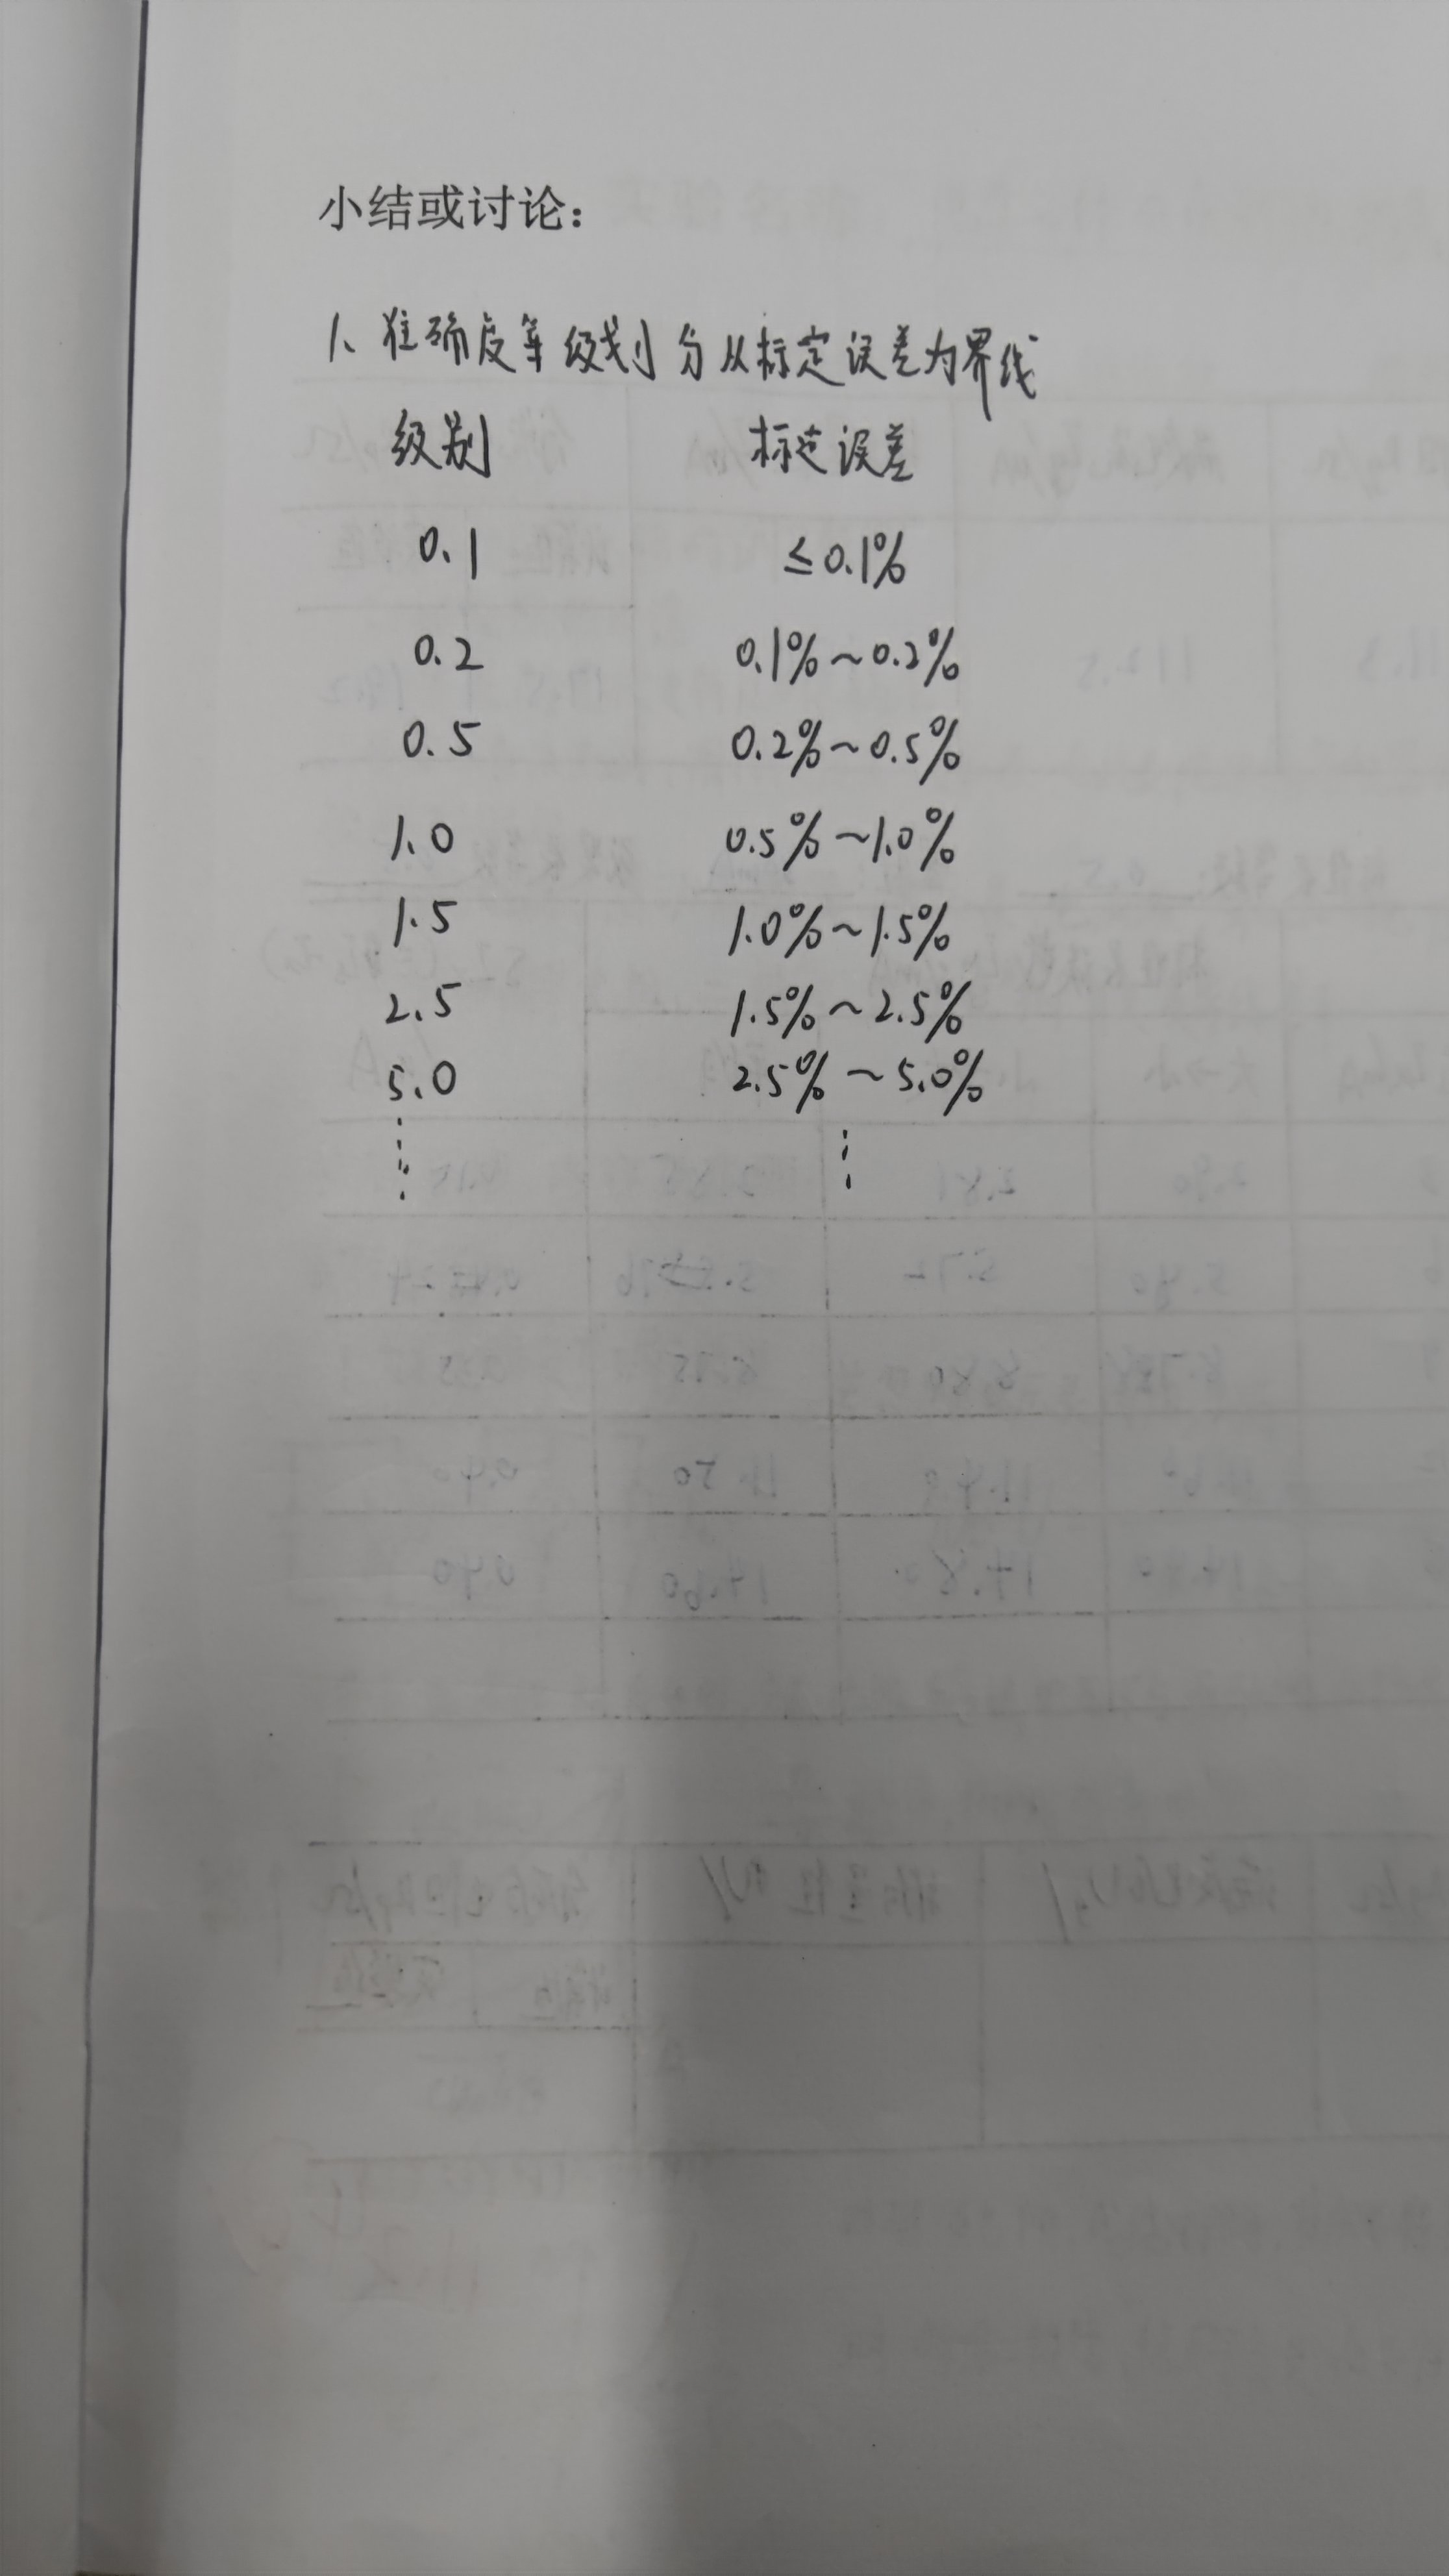 小结或讨论：
1、准确度等级划分从标定误差为界线
级别 标定误差
0.1 ≤0.1%
0.2 0.1%~0.2%
0.5 0.2%~0.5%
1.0 0.5%~1.0%
1.5 1.0%~1.5%
2.5 1.5%~2.5%
5.0 2.5%~5.0%